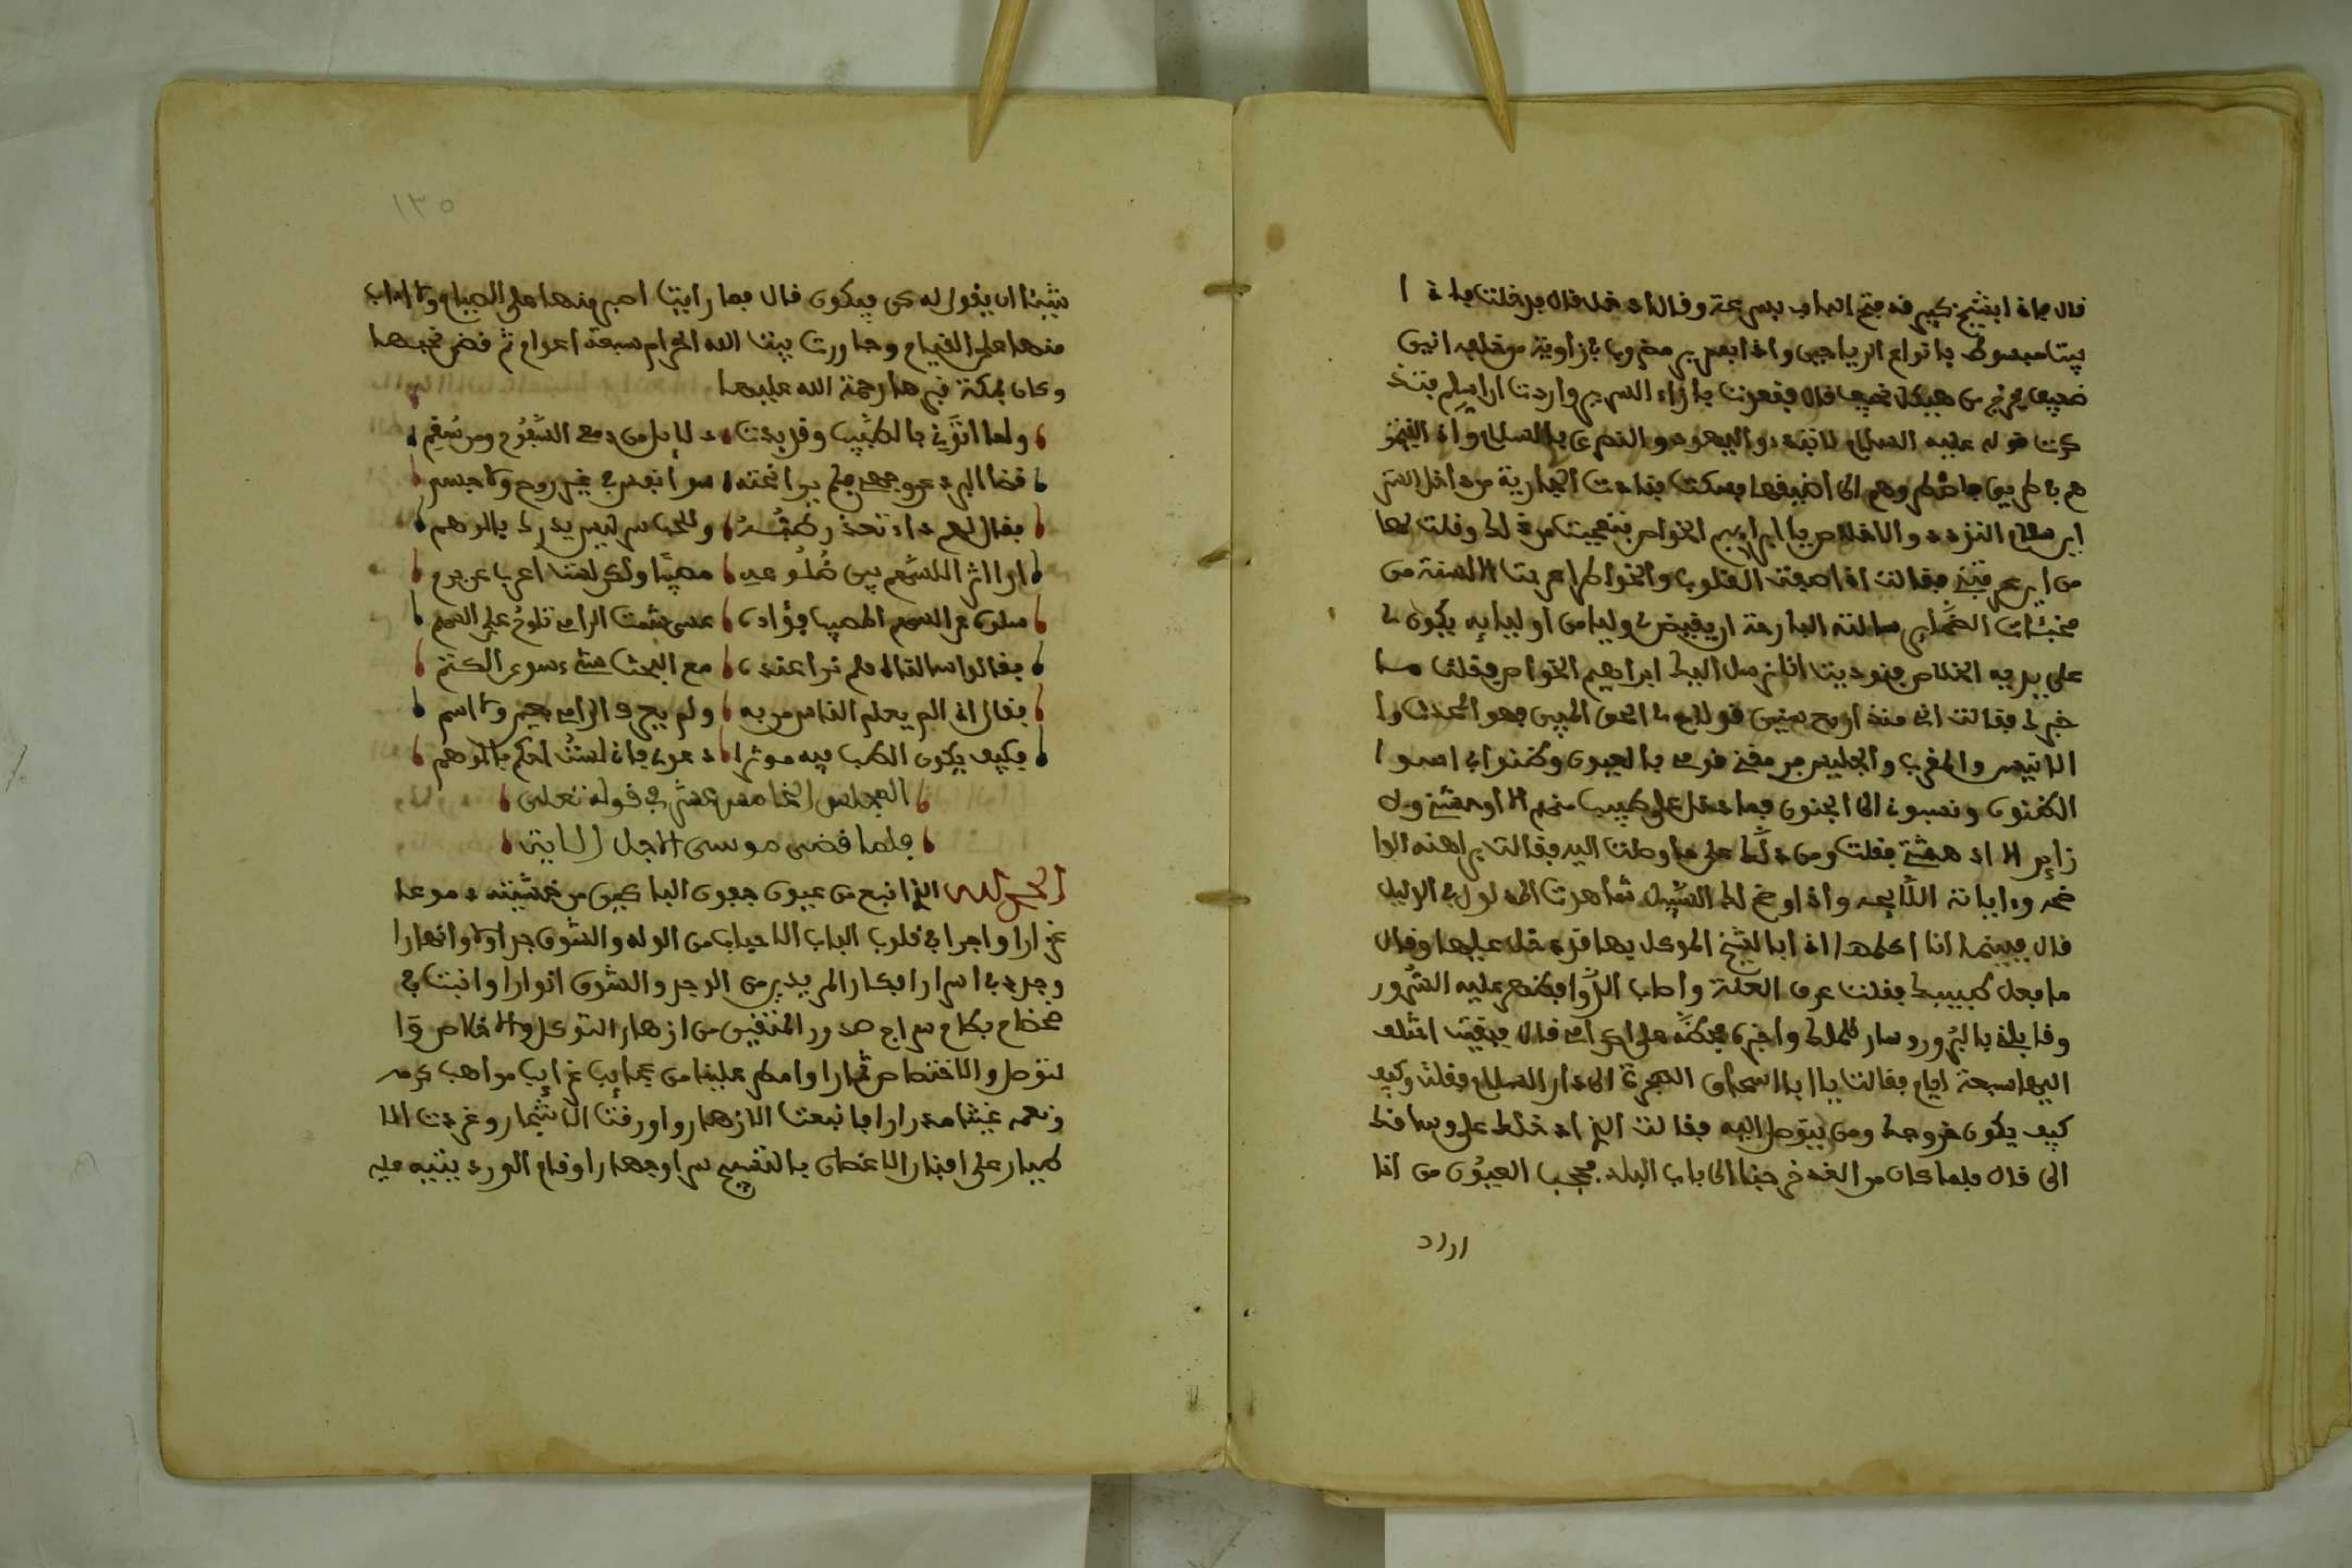 قال فاذا بشيخ كبير قد فتح الباب بسرعة وقال ادخل قال فدخلت فاذا
بيتا مبسوط بانواع الرياحين واذا بسرير مضروب بزاوية من خلفه انين
ضعيف يخرج من هيكل نحيف قال فقعدت بازاء السرير واردت ان اسلم فتذ
كرت قوله عليه السلام لا تبدوا اليهود والنصرى بالسلام واذا لقيتمو
هم في طريق فاضطروهم الى اضيقها فسكت فنادت الجارية من داخل الستر
اين سلام التودد والاخلاص يا ابراهيم الخواص فتعجبت من ذلك وقلت لها
من اين عرفتني فقالت اذا صفت القلوب والخواطر اعربت الالسنة من
مخبئات الضماير سالته البارحة ان يقيض لي وليا من اوليايه يكون لي
على يديه الخلاص فنوديت انا نرسل اليك ابراهيم الخواص فقلت ما
خبرك فقالت انى منذ اربع سنين قد لاح لي الحق المبين فهو المحدث وا
لانيس والمقرب والجليس فرمقني قومي بالعيون وظنوا بي اسوا
الظنون ونسبوني الى الجنون فما دخل على طبيب منهم الا اوحشني ولا
زاير الا ادهشني فقلت ومن دلك على ما وصلت اليه فقالت براهنه الوا
ضحه واياته اللايحه واذا وضح لك السبيل شاهدت المدلول في الدليل
قال فبينما انا اكلمها اذا بالشيخ الموكل بها قد دخل عليها وقال
ما فعل طبيبك فقلت عرف العلة واصاب الدوا فظهر عليه السرور
وقابلني بالبرور وسار للملك واخبره فحضه على اكرامي قال فبقيت اختلف
اليها سبعة ايام فقالت يا ابا اسحاق الهجرة الى دار السلام فقلت وكيف
كيف يكون خروجك ومن يتوصل اليه فقالت الذي ادخلك علي وساقك
الي قال فلما كان من الغد خرجنا الى باب البلد فحجب العيون من اذا
اراد
١٣٥
شيئا ان يقول له كن فيكون قال فما رايت اصبر منها على الصيام ولا اداب
منها على القيام وجاورت بيت الله الحرام سبعة اعوام ثم قضى نحبها
وكان بمكة قبرها رحمة الله عليها
ولما اتوني بالطبيب وقد بدت دلايل من دمعي السفوح ومن سقمي
نضا البرد عن وجهي فلم ير تحته سوا نفس في غير روح ولا جسم
فقال لهم ذا تعذر طبه وللحب سر ليس يدرك بالوهم
اروا اثرا للسهم بين ضلوعه مصيبا ولكن لست اعرف عن جرح
سلوني عن السهم المصيب فؤادي عسى شمت الرامي تلوح على السهم
فقالوا سالناه فلم نرا عنده مع البحث شيء سوى الكتم
فقال اذا لم يعلم الناس من به ولم يعرف الرامي بعين ولا اسم
فكيف يكون الطب فيه موثرا دعوني فاني لست احكم بالوهم
المجلس الخامس عشر في قوله تعلى
فلما قضى موسى الاجل الايت
الحمد لله الذي انبع من عيون جفون الباكين من خشيته دموعا
غزارا واجرا في قلوب الباب الاحباب من الوله والشوق جداولا وانهارا
وجدد في اسرار افكار المريدين من الوجد والشوق انوارا وانبت في
صحصاح بطاح سراج صدور المتقين من ازهار التوكل والاخلاص وا
لتوصل والاختصاص ثمارا وامطر علينا من عجايب غرايب مواهب كرمه
ونعمه غيثا مدرارا فاينعت الازهار واورقت الاشجار وغردت الا
طيار على افنان الاغصان بالتسبيح سرا وجهارا وقام الورد بتنبيه عليه